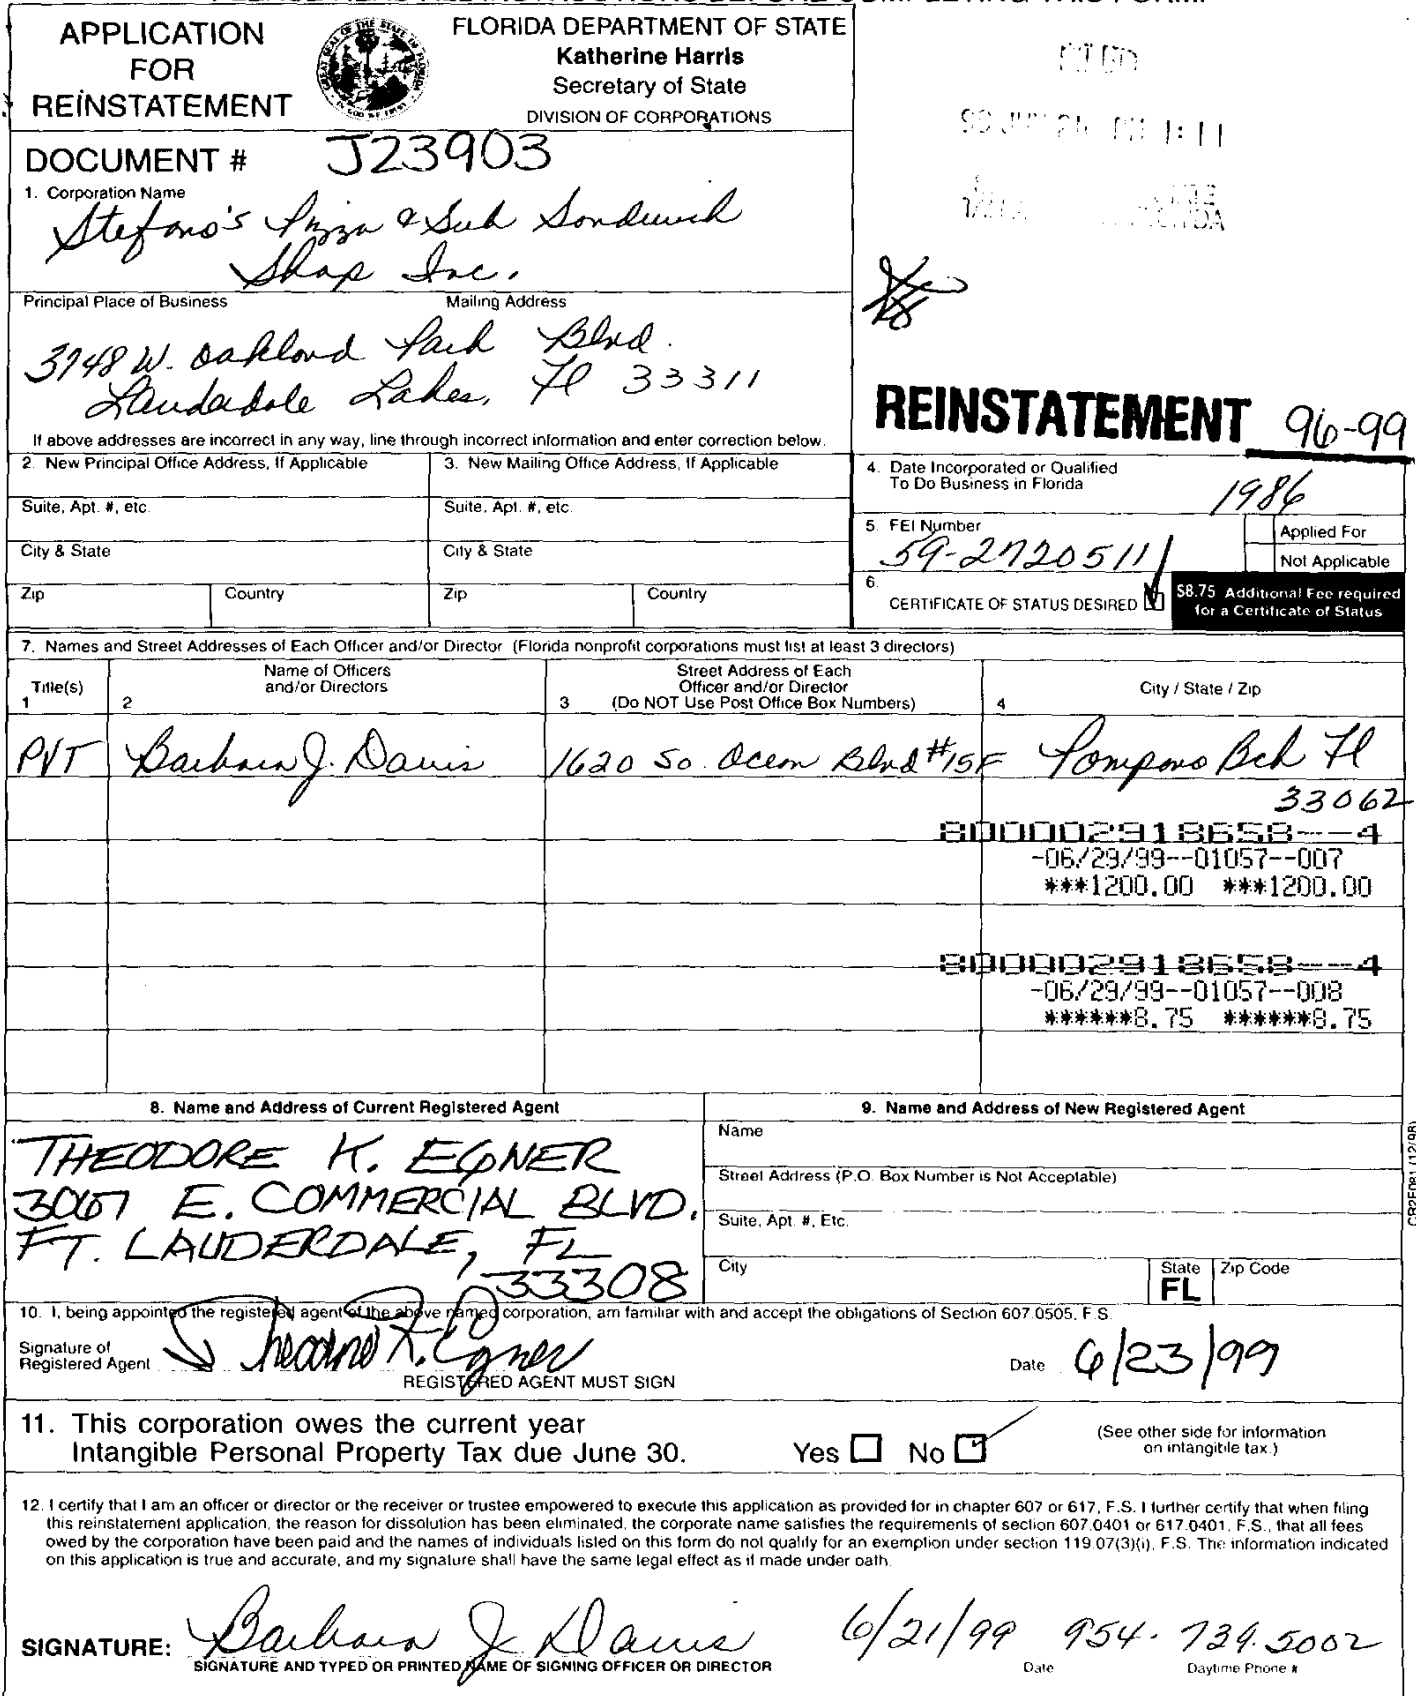 APPLICATION
FOR
REINSTATEMENT
FLORIDA DEPARTMENT OF STATE
Katherine Harris
Secretary of State
DIVISION OF CORPORATIONS
DOCUMENT # J23903
1. Corporation Name
Stefano's Pizza & Sub Sandwich
Shop Inc.
Principal Place of Business Mailing Address
3748 W. Oakland Park Blvd.
Lauderdale Lakes, Fl 33311
If above addresses are incorrect in any way, line through incorrect information and enter correction below.
REINSTATEMENT 96-99
2. New Principal Office Address, If Applicable
3. New Mailing Office Address, If Applicable
Suite, Apt. #, etc.
Suite, Apt. #, etc.
City & State
City & State
Zip Country
Zip Country
4. Date Incorporated or Qualified
To Do Business in Florida
1986
5. FEI Number
59-2720511
Applied For
Not Applicable
6.
CERTIFICATE OF STATUS DESIRED
$8.75 Additional Fee required
for a Certificate of Status
7. Names and Street Addresses of Each Officer and/or Director (Florida nonprofit corporations must list at least 3 directors)
Title(s)
1
Name of Officers
and/or Directors
2
Street Address of Each
Officer and/or Director
3 (Do NOT Use Post Office Box Numbers)
City / State / Zip
4
PVT Barbara J. Davis 1620 So. Ocean Blvd #15F Pompano Bch Fl
33062
800002918658--4
-06/29/99--01057--007
***1200.00 ***1200.00
800002918658--4
-06/29/99--01057--008
******8.75 ******8.75
8. Name and Address of Current Registered Agent
THEODORE K. EGNER
3067 E. COMMERCIAL BLVD.
FT. LAUDERDALE, FL
33308
9. Name and Address of New Registered Agent
Name
Street Address (P.O. Box Number is Not Acceptable)
Suite, Apt. #, Etc.
City
State
FL
Zip Code
CR2E081 (12/98)
10. I, being appointed the registered agent of the above named corporation, am familiar with and accept the obligations of Section 607.0505, F.S.
Signature of
Registered Agent
Theodore K. Egner
REGISTERED AGENT MUST SIGN
Date 6/23/99
11. This corporation owes the current year
Intangible Personal Property Tax due June 30.
Yes No
(See other side for information
on intangible tax.)
12. I certify that I am an officer or director or the receiver or trustee empowered to execute this application as provided for in chapter 607 or 617, F.S. I further certify that when filing
this reinstatement application, the reason for dissolution has been eliminated, the corporate name satisfies the requirements of section 607.0401 or 617.0401, F.S., that all fees
owed by the corporation have been paid and the names of individuals listed on this form do not qualify for an exemption under section 119.07(3)(i), F.S. The information indicated
on this application is true and accurate, and my signature shall have the same legal effect as if made under oath.
SIGNATURE: Barbara J. Davis 6/21/99 954-739-5002
SIGNATURE AND TYPED OR PRINTED NAME OF SIGNING OFFICER OR DIRECTOR
Date
Daytime Phone #